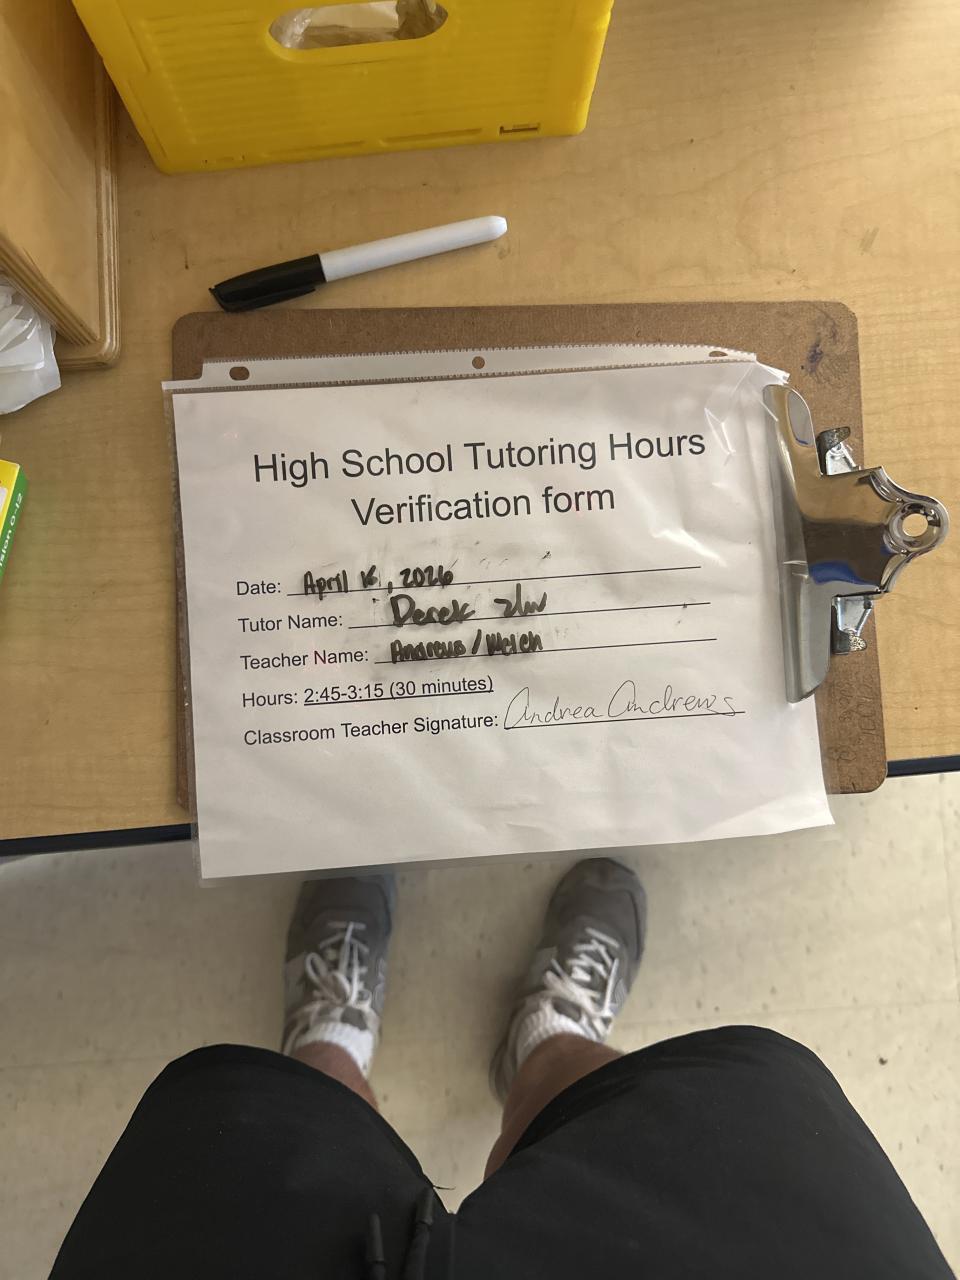 High School Tutoring Hours
Verification form
Date: April 16, 2026
Tutor Name: Derek
Teacher Name: Andrews / Welch
Hours: 2:45-3:15 (30 minutes)
Classroom Teacher Signature: Andrea Andrews